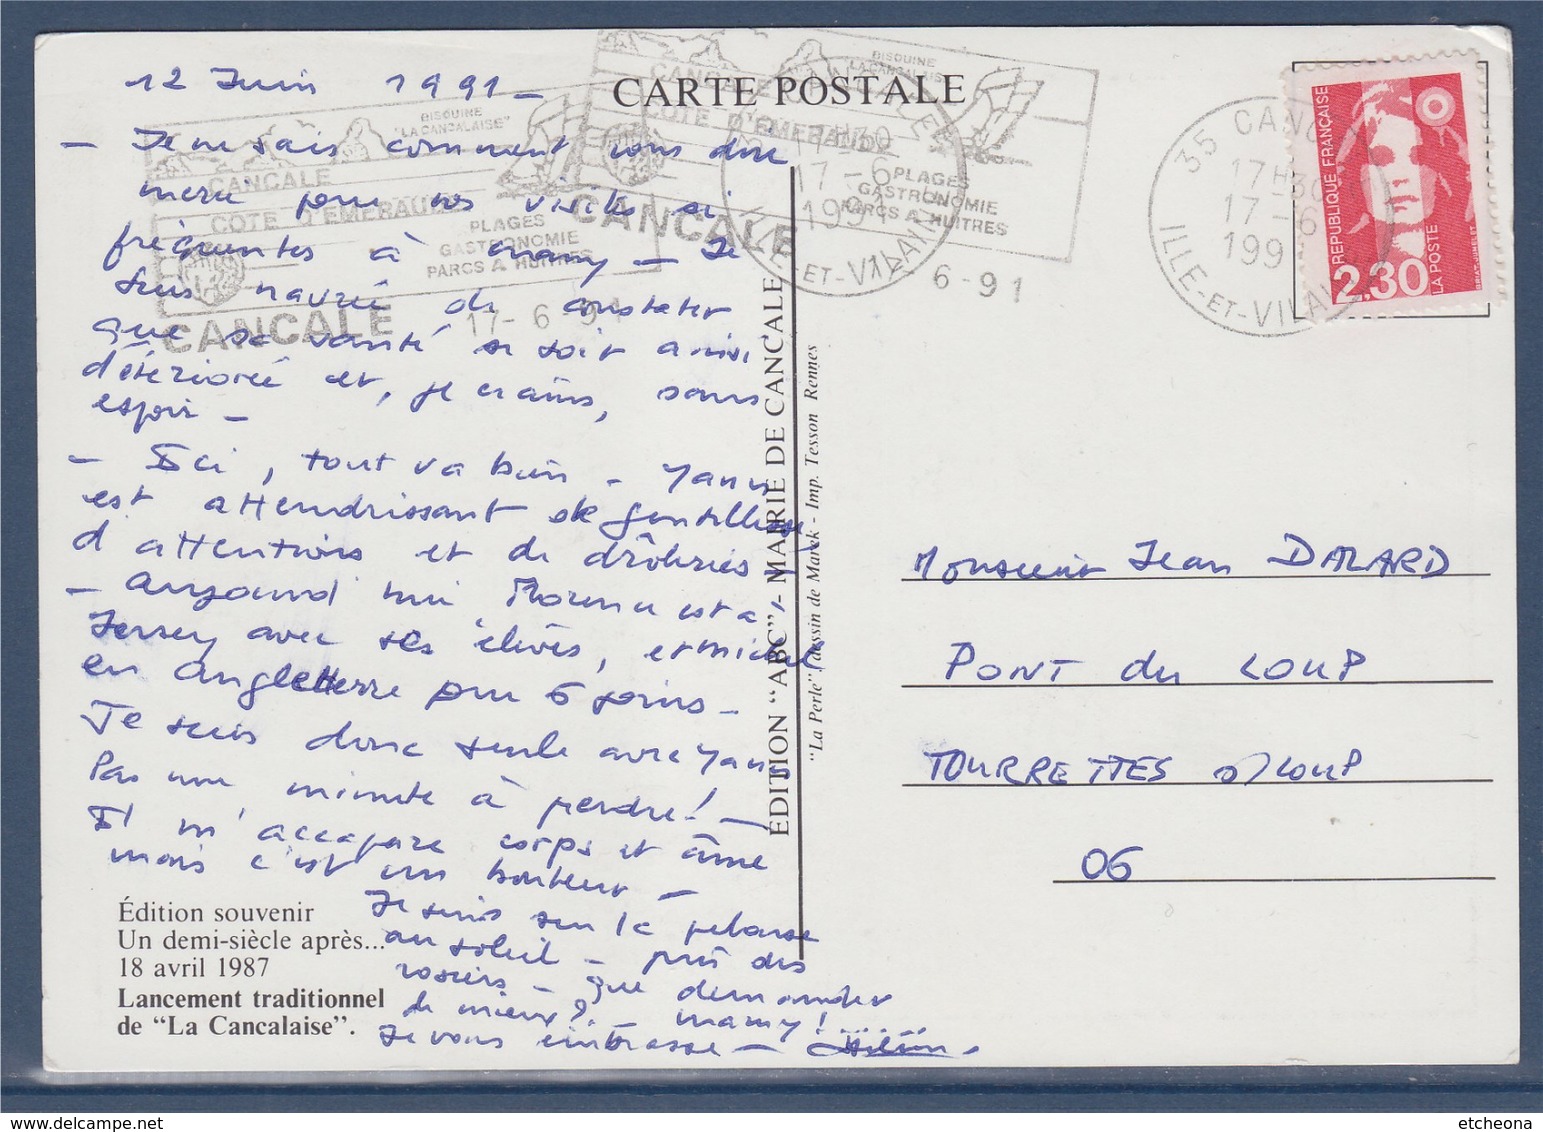 CARTE POSTALE
12 Juin 1991 -
- Je ne sais comment vous dire
merci pour vos visites si
fréquentes à mamy - Je
suis navrée de constater
que sa santé se soit ainsi
détériorée et, je crains, sans
espoir -
- Ici, tout va bien - Yann
est attendrissant de gentillesse
d'attentions et de drôleries -
- Aujourd'hui est à
Jersey avec ses élèves, et Michel
en Angleterre pour 6 jours -
Je suis donc seule avec Yann
Pas une minute à perdre! -
Il m'accapare corps et âme
mais c'est un bonheur -
Je suis sur la pelouse
au soleil - près des
rosiers - que demander
de mieux? mamy!
Je vous embrasse -
Édition souvenir
Un demi-siècle après...
18 avril 1987
Lancement traditionnel
de “La Cancalaise”.
ÉDITION “ABC” - MAIRIE DE CANCALE
“La Perle” dessin de Marek - Imp. Tesson Rennes
BISQUINE
"LA CANCALAISE"
CANCALE
COTE D'EMERAUDE
PLAGES
GASTRONOMIE
PARCS A HUITRES
CANCALE 17-6-91
BISQUINE
"LA CANCALAISE"
CANCALE
COTE D'EMERAUDE
PLAGES
GASTRONOMIE
PARCS A HUITRES
CANCALE
6-91
17H30
17-6
1991
ILLE-ET-VILAINE
35 CANCALE
17H30
17-6
1991
ILLE-ET-VILAINE
REPUBLIQUE FRANÇAISE
2.30
LA POSTE
Monsieur Jean DALARD
PONT du LOUP
TOURRETTES s/LOUP
06
etcheona